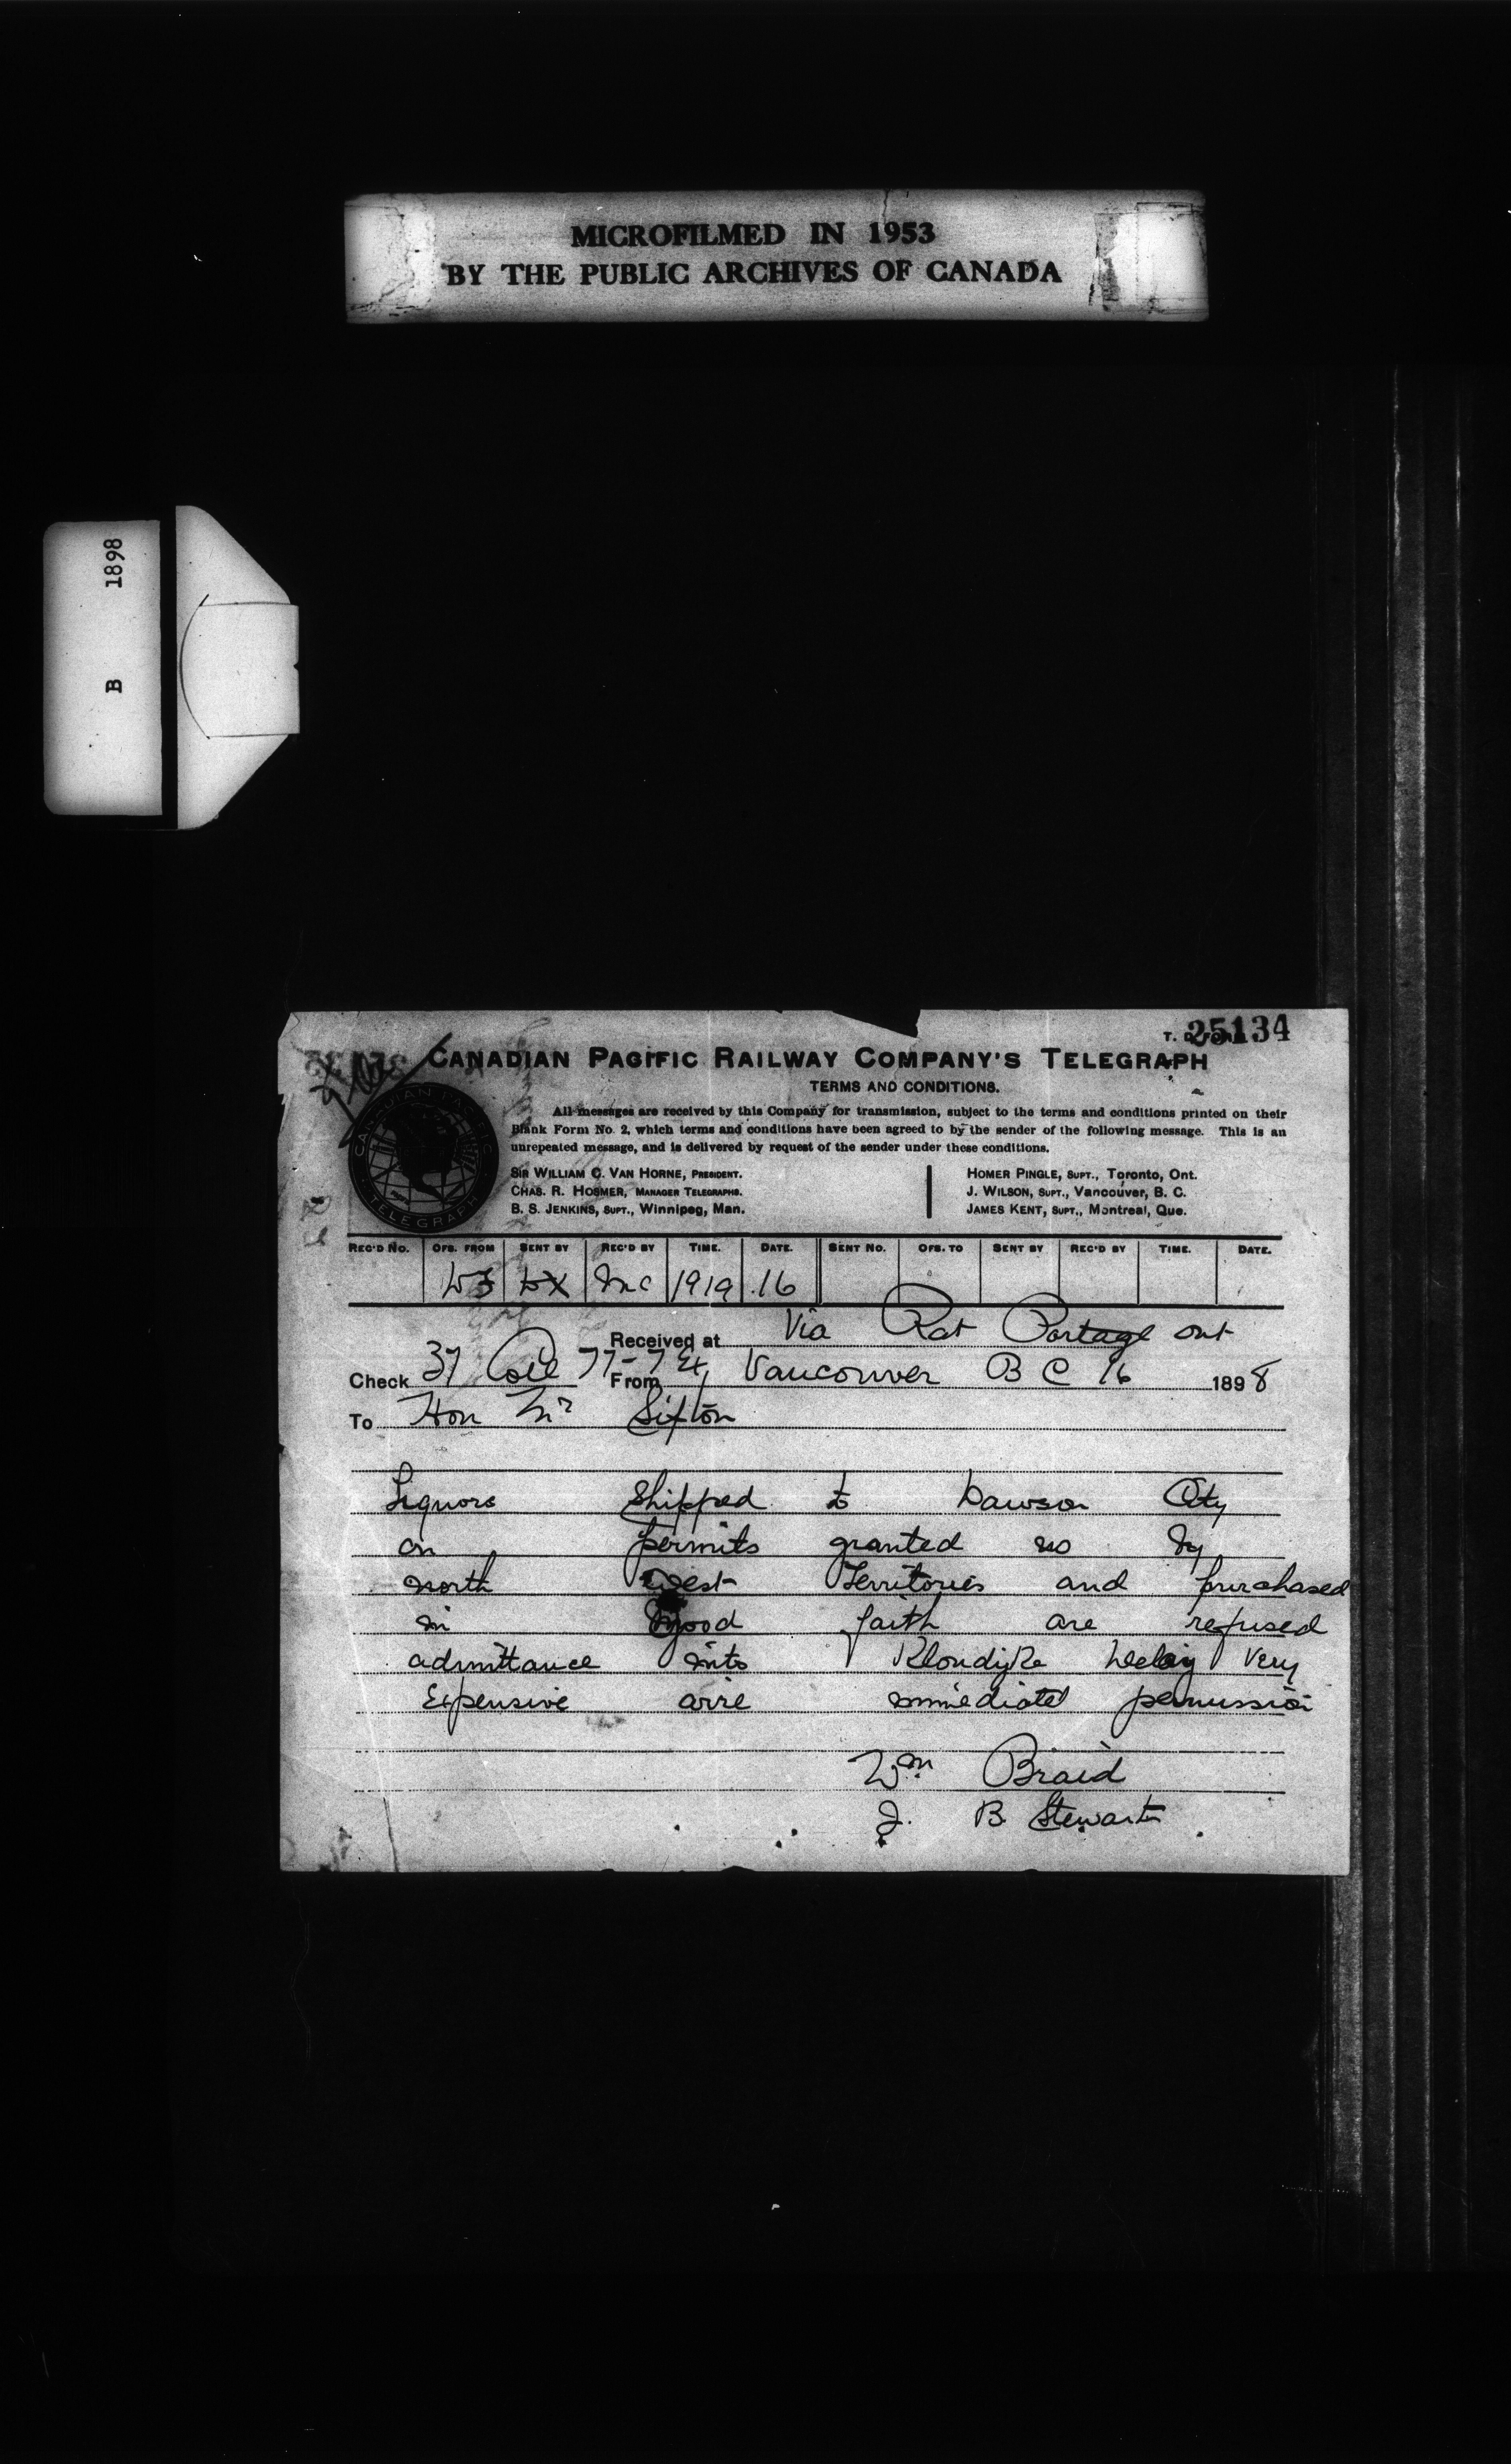 MICROFILMED IN 1953
BY THE PUBLIC ARCHIVES OF CANADA
B 1898
25134
CANADIAN PACIFIC RAILWAY COMPANY'S TELEGRAPH
TERMS AND CONDITIONS.
All messages are received by this Company for transmission, subject to the terms and conditions printed on their
Blank Form No. 2, which terms and conditions have been agreed to by the sender of the following message. This is an
unrepeated message, and is delivered by request of the sender under these conditions.
CANADIAN PACIFIC TELEGRAPH
SIR WILLIAM C. VAN HORNE, PRESIDENT.
CHAS. R. HOSMER, MANAGER TELEGRAPHS.
B. S. JENKINS, SUPT., Winnipeg, Man.
HOMER PINGLE, SUPT., Toronto, Ont.
J. WILSON, SUPT., Vancouver, B. C.
JAMES KENT, SUPT., Montreal, Que.
REC'D NO. OFS. FROM SENT BY REC'D BY TIME. DATE. SENT NO. OFS. TO SENT BY REC'D BY TIME. DATE.
Mc 1919 16
Received at Via Rat Portage Ont
Check 37 From Vancouver B C 16 1898
To Hon Mr Sifton
Liquors Shipped to Dawson City
on permits granted us by
north West Territories and purchased
in good faith are refused
admittance into Klondyke Delay Very
Expensive wire immediate permission
Wm Braid
J. B Stewart